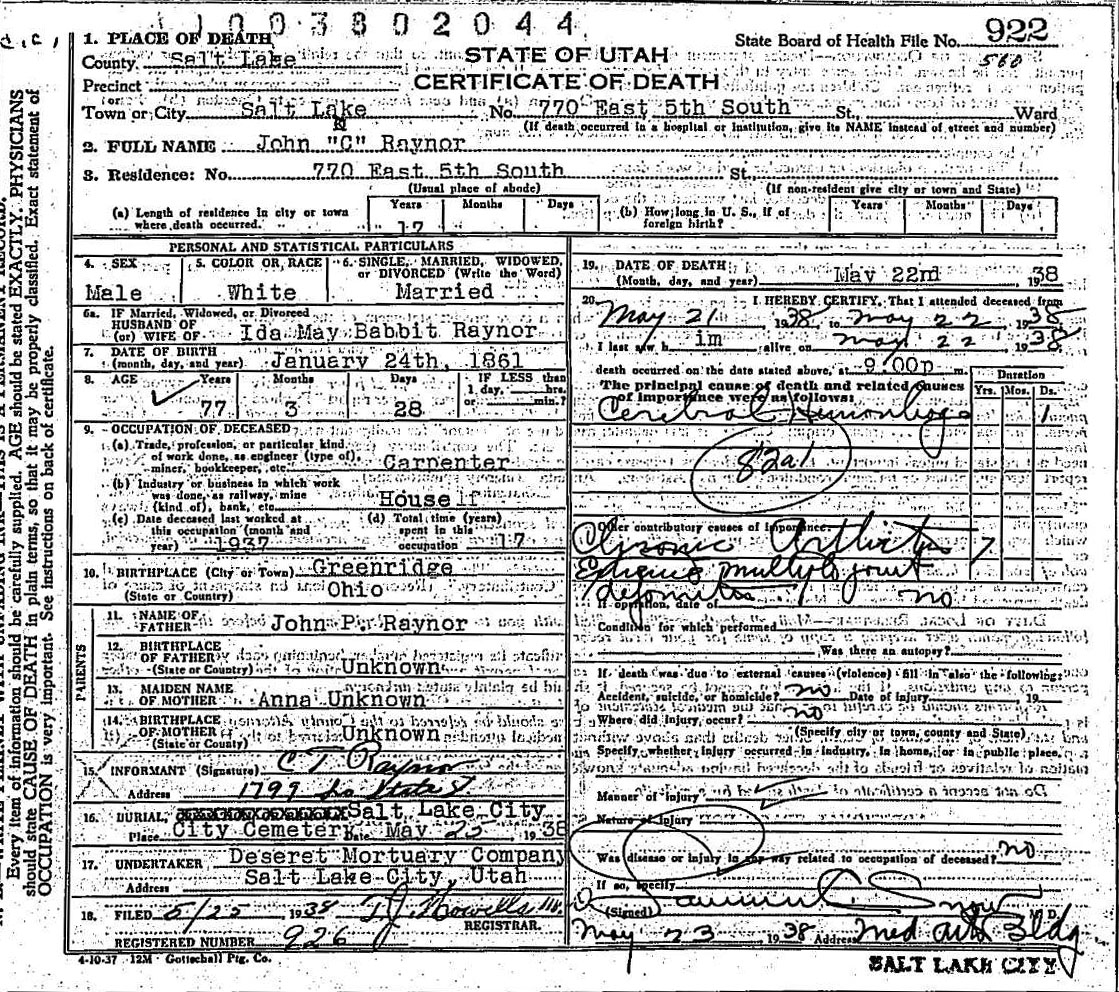 1003802044
1. PLACE OF DEATH
State Board of Health File No. 922
560
County Salt Lake
STATE OF UTAH
Precinct
CERTIFICATE OF DEATH
Town or City Salt Lake No. 770 East 5th South St., Ward
(If death occurred in a hospital or institution, give its NAME instead of street and number)
2. FULL NAME John "C" Raynor
3. Residence: No. 770 East 5th South St.
(Usual place of abode) (If non-resident give city or town and State)
(a) Length of residence in city or town where death occurred. Years 17 Months Days
(b) How long in U. S., if of foreign birth? Years Months Days
PERSONAL AND STATISTICAL PARTICULARS
4. SEX Male
5. COLOR OR RACE White
6. SINGLE, MARRIED, WIDOWED, or DIVORCED (Write the Word) Married
6a. IF Married, Widowed, or Divorced
HUSBAND OF (or) WIFE OF Ida May Babbit Raynor
7. DATE OF BIRTH (month, day, and year) January 24th, 1861
8. AGE Years 77 Months 3 Days 28 IF LESS than 1 day, hrs. or min.?
9. OCCUPATION OF DECEASED
(a) Trade, profession, or particular kind of work done, as engineer (type of), miner, bookkeeper, etc. Carpenter
(b) Industry or business in which work was done, as railway, mine (kind of), bank, etc. House lf
(c) Date deceased last worked at this occupation (month and year) 1937
(d) Total time (years) spent in this occupation 17
10. BIRTHPLACE (City or Town) Greenridge
(State or Country) Ohio
PARENTS
11. NAME OF FATHER John P. Raynor
12. BIRTHPLACE OF FATHER (State or Country) Unknown
13. MAIDEN NAME OF MOTHER Anna Unknown
14. BIRTHPLACE OF MOTHER (State or County) Unknown
15. INFORMANT (Signature) C T Raynor
Address 1797 So State St
16. BURIAL, Salt Lake City
Place City Cemetery Date May 25 1938
17. UNDERTAKER Deseret Mortuary Company
Address Salt Lake City, Utah
18. FILED 5/25 1938 T J Howells
REGISTRAR.
REGISTERED NUMBER 926
4-10-37 12M - Gottschall Ptg. Co.
19. DATE OF DEATH (Month, day, and year) May 22nd 1938
20. I HEREBY CERTIFY, That I attended deceased from
May 21 1938 to May 22 1938
I last saw him alive on May 22 1938
death occurred on the date stated above, at 9:00p m.
The principal cause of death and related causes of importance were as follows:
Duration
Yrs. Mos. Ds.
Cerebral Hemorrhage 1
82a1
Other contributory causes of importance:
Chronic Arthritis 7
multiple joint
deformities
If operation, date of no
Condition for which performed
Was there an autopsy?
If death was due to external causes (violence) fill in also the following:
Accident, suicide, or homicide? no Date of injury 19
Where did injury occur? no
(Specify city or town, county and State)
Specify whether injury occurred in industry, in home, or in public place.
Manner of injury
Nature of injury
Was disease or injury in any way related to occupation of deceased? no
If so, specify
(Signed) Snow M. D.
May 23 1938 Address Med Arts Bldg
SALT LAKE CITY
Every item of information should be carefully supplied. AGE should be stated EXACTLY. PHYSICIANS
should state CAUSE OF DEATH in plain terms, so that it may be properly classified. Exact statement of
OCCUPATION is very important. See instructions on back of certificate.